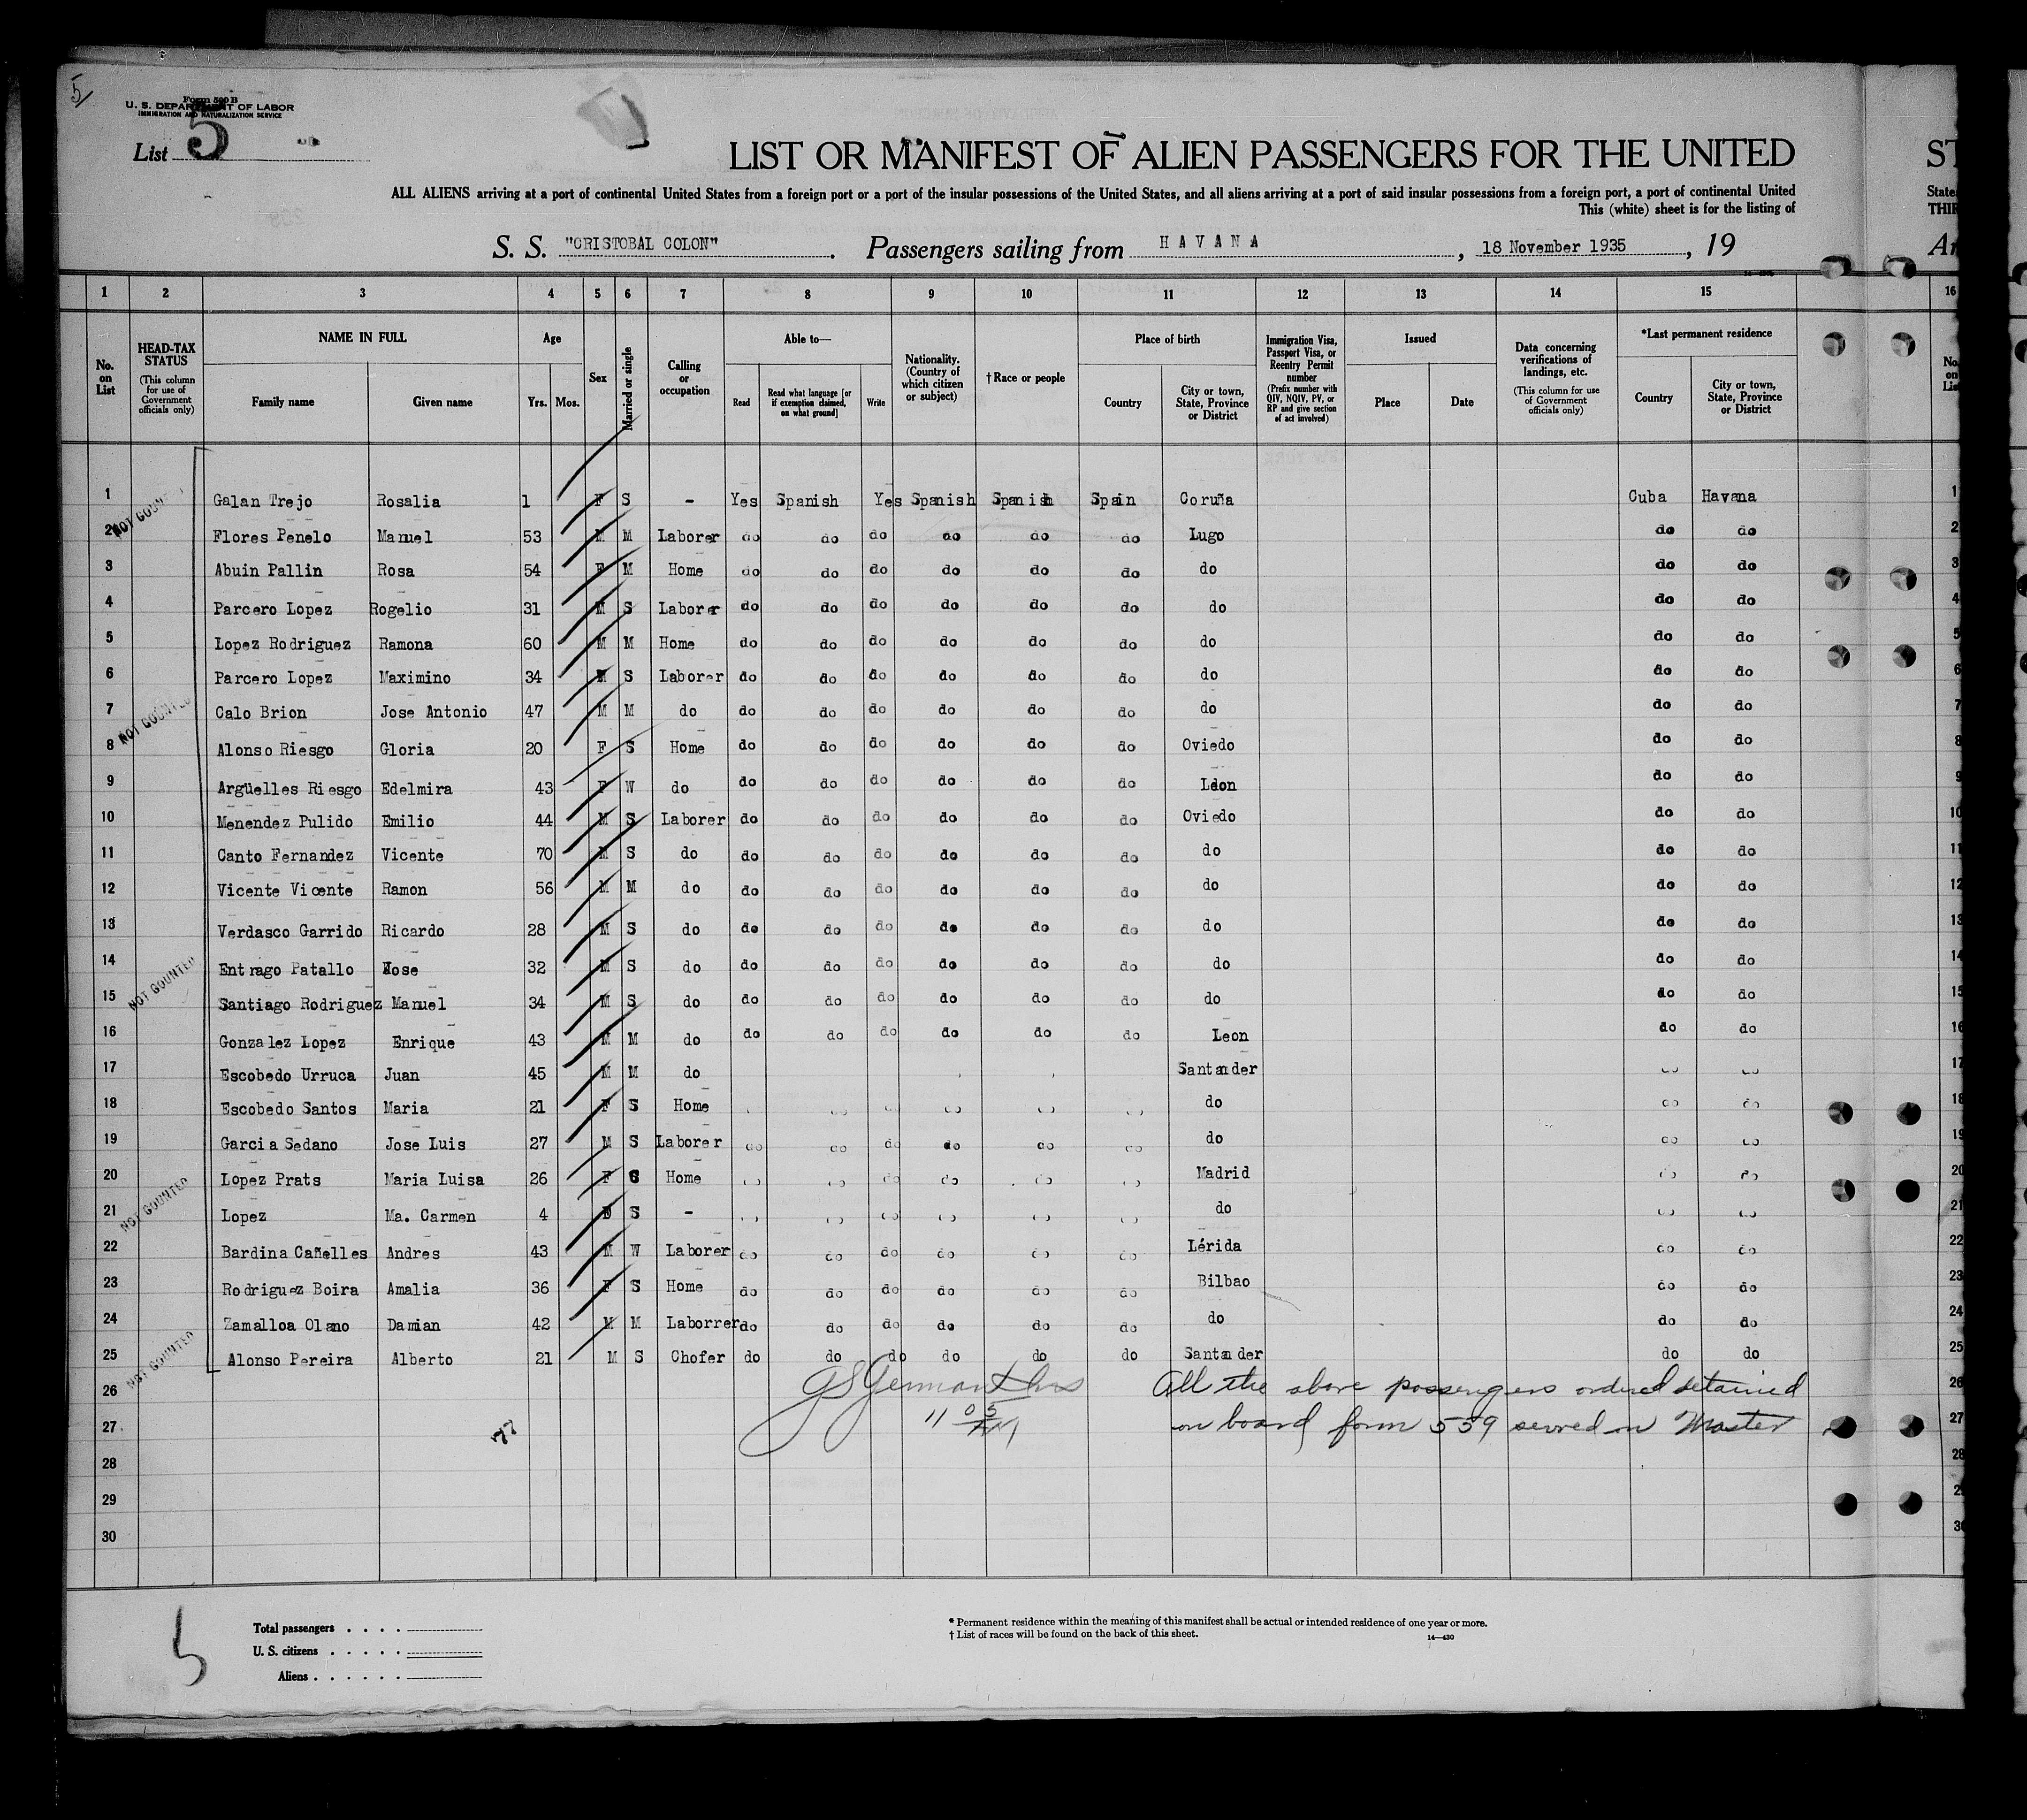 5/
Form 500 B
U. S. DEPARTMENT OF LABOR
IMMIGRATION AND NATURALIZATION SERVICE
List 5
LIST OR MANIFEST OF ALIEN PASSENGERS FOR THE UNITED
ST
ALL ALIENS arriving at a port of continental United States from a foreign port or a port of the insular possessions of the United States, and all aliens arriving at a port of said insular possessions from a foreign port, a port of continental United
State
This (white) sheet is for the listing of
THIR
S. S. "CRISTOBAL COLON". Passengers sailing from HAVANA, 18 November 1935, 19
1 2 3 4 5 6 7 8 9 10 11 12 13 14 15 16
No. on List
HEAD-TAX STATUS
(This column for use of Government officials only)
NAME IN FULL
Family name Given name
Age
Yrs. Mos.
Sex
Married or single
Calling or occupation
Able to—
Read
Read what language [or if exemption claimed, on what ground]
Write
Nationality. (Country of which citizen or subject)
†Race or people
Place of birth
Country
City or town, State, Province or District
Immigration Visa, Passport Visa, or Reentry Permit number
(Prefix number with QIV, NQIV, PV, or RP and give section of act involved)
Issued
Place Date
Data concerning verifications of landings, etc.
(This column for use of Government officials only)
*Last permanent residence
Country
City or town, State, Province or District
1 Galan Trejo Rosalia 1 F S - Yes Spanish Yes Spanish Spanish Spain Coruña Cuba Havana 1
2 Flores Penelo Manuel 53 M M Laborer do do do do do do Lugo do do 2
3 Abuin Pallin Rosa 54 F M Home do do do do do do do do do 3
4 Parcero Lopez Rogelio 31 M S Laborer do do do do do do do do do 4
5 Lopez Rodriguez Ramona 60 M M Home do do do do do do do do do 5
6 Parcero Lopez Maximino 34 M S Laborer do do do do do do do do do 6
7 Calo Brion Jose Antonio 47 M M do do do do do do do do do do 7
8 Alonso Riesgo Gloria 20 F S Home do do do do do do Oviedo do do 8
9 Argüelles Riesgo Edelmira 43 F W do do do do do do do Leon do do 9
10 Menendez Pulido Emilio 44 M S Laborer do do do do do do Oviedo do do 10
11 Canto Fernandez Vicente 70 M S do do do do do do do do do do 11
12 Vicente Vicente Ramon 56 M M do do do do do do do do do do 12
13 Verdasco Garrido Ricardo 28 M S do do do do do do do do do do 13
14 Entrago Patallo Jose 32 M S do do do do do do do do do do 14
15 Santiago Rodriguez Manuel 34 M S do do do do do do do do do do 15
16 Gonzalez Lopez Enrique 43 M M do do do do do do do Leon do do 16
17 Escobedo Urruca Juan 45 M M do Santander do do 17
18 Escobedo Santos Maria 21 F S Home do do do do do do do do do 18
19 Garcia Sedano Jose Luis 27 M S Laborer do do do do do do do do do 19
20 Lopez Prats Maria Luisa 26 F S Home do do do do do do Madrid do do 20
21 Lopez Ma. Carmen 4 S - do do do do do do do do do 21
22 Bardina Cañelles Andres 43 M W Laborer do do do do do do Lérida do do 22
23 Rodriguez Boira Amalia 36 F S Home do do do do do do Bilbao do do 23
24 Zamalloa Olano Damian 42 M M Laborrer do do do do do do do do do 24
25 Alonso Pereira Alberto 21 M S Chofer do do do do do do Santander do do 25
26 All the above passengers ordered detained 26
27 on board form 559 served on Master 27
28 28
29 29
30 30
NOT COUNTED
NOT COUNTED
NOT COUNTED
NOT COUNTED
NOT COUNTED
5
Total passengers
U. S. citizens
Aliens
* Permanent residence within the meaning of this manifest shall be actual or intended residence of one year or more.
† List of races will be found on the back of this sheet.
14—430